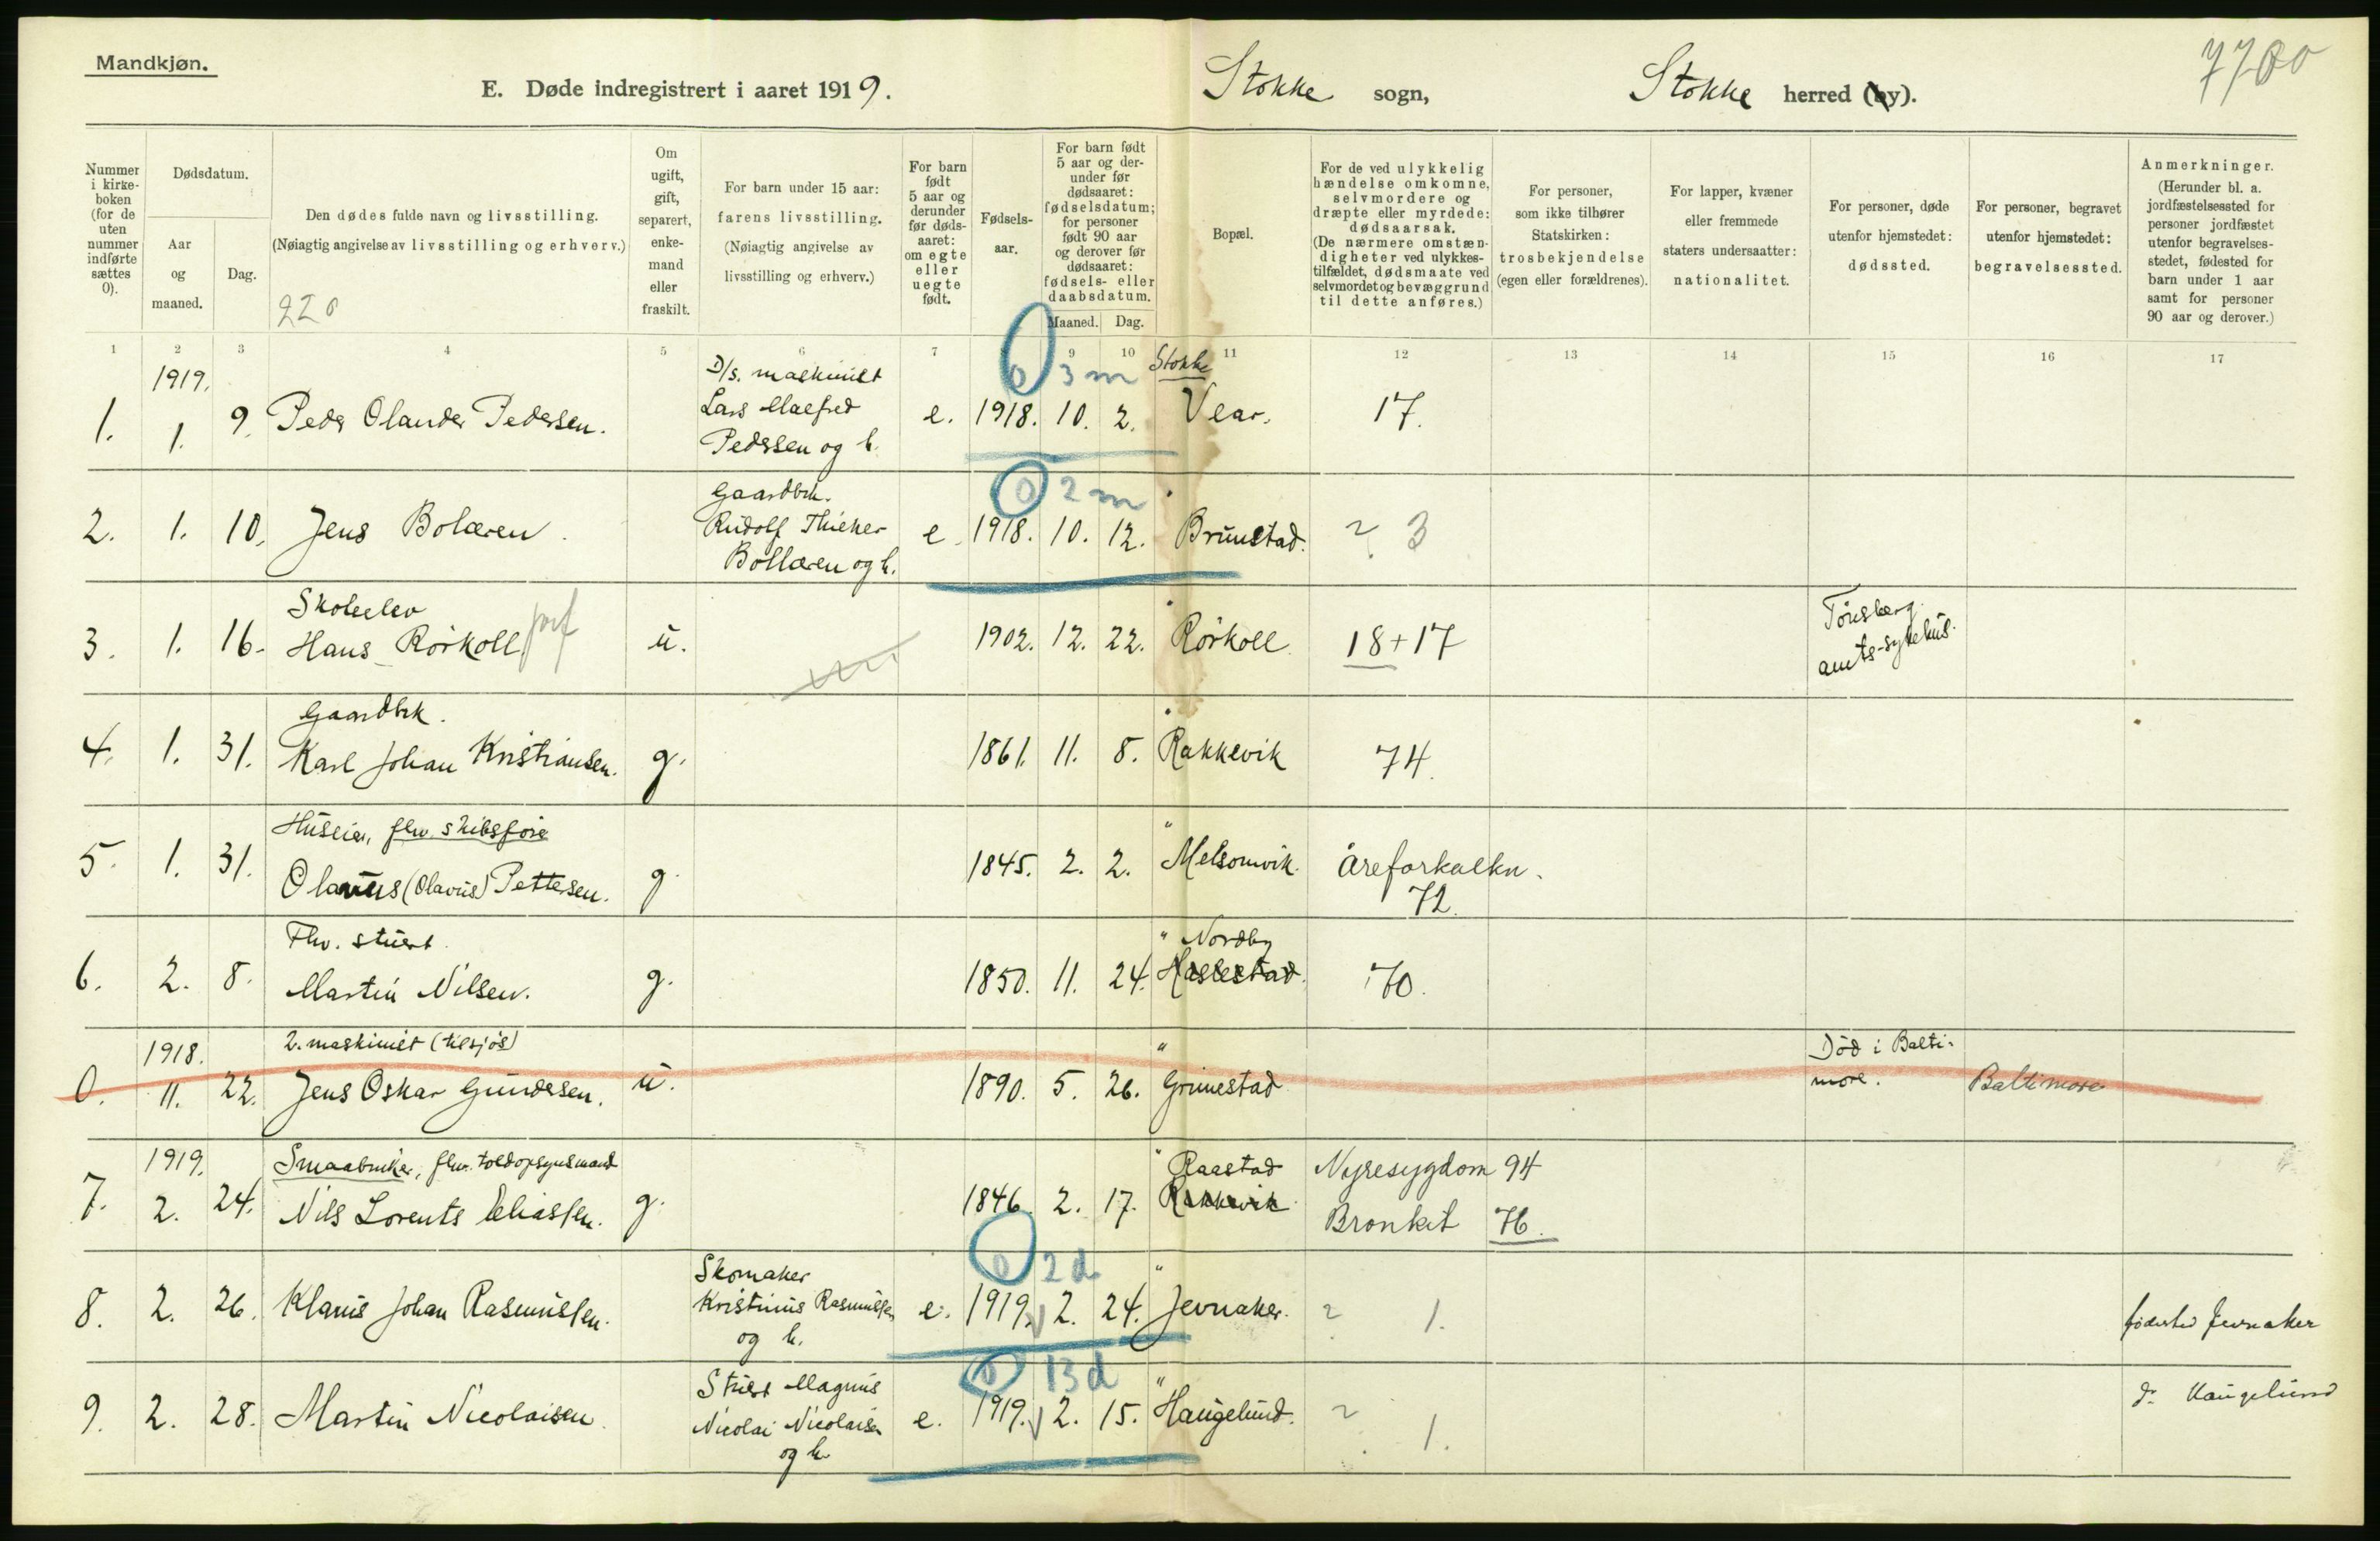 Mandkjøn.
E. Døde indregistrert i aaret 1919.
Stokke sogn,
Stokke herred (by).
7700
Nummer i kirke-boken (for de uten nummer indførte sættes 0).
Dødsdatum.
Aar og maaned.
Dag.
Den dødes fulde navn og livsstilling.
(Nøiagtig angivelse av livsstilling og erhverv.)
220
Om ugift, gift, separert, enke-mand eller fraskilt.
For barn under 15 aar: farens livsstilling. (Nøiagtig angivelse av livsstilling og erhverv.)
For barn født 5 aar og derunder før døds-aaret: om egte eller uegte født.
Fødsels-aar.
For barn født 5 aar og der-under før dødsaaret: fødselsdatum; for personer født 90 aar og derover før dødsaaret: fødsels- eller daabsdatum.
Maaned. Dag.
Bopæl.
For de ved ulykkelig hændelse omkomne, selvmordere og dræpte eller myrdede: dødsaarsak. (De nærmere omstæn-digheter ved ulykkes-tilfældet, dødsmaate ved selvmordet og bevæggrund til dette anføres.)
For personer, som ikke tilhører Statskirken: trosbekjendelse (egen eller forældrenes).
For lapper, kvæner eller fremmede staters undersaatter: nationalitet.
For personer, døde utenfor hjemstedet: dødssted.
For personer, begravet utenfor hjemstedet: begravelsessted.
Anmerkninger. (Herunder bl. a. jordfæstelsessted for personer jordfæstet utenfor begravelses-stedet, fødested for barn under 1 aar samt for personer 90 aar og derover.)
1 2 3 4 5 6 7 9 10 11 12 13 14 15 16 17
1919. D/s. maskinist 0 3 m Stokke
1. 1. 9. Peder Olander Pedersen. Lars Malfred e. 1918. 10. 2. Vear. 17.
Pedersen og h.
Gaardbrk. 0 2 m "
2. 1. 10. Jens Bolæren. Rudolf Thieker e. 1918. 10. 12. Brunstad. ? 3
Bollæren og h.
Skoleelev " Tønsberg
3. 1. 16. Hans Rørkoll u. 1902. 12. 22. Rørkoll. 18+17 amts-sykehus.
Gaardbrk. "
4. 1. 31. Karl Johan Kristiansen. g. 1861. 11. 8. Rakkevik 74.
Huseier, fhv. skibsfører "
5. 1. 31. Olavus (Olavus) Pettersen. g. 1845. 2. 2. Melsomvik. Åreforkalkn.
72.
Fhv. stuert. " Nordby
6. 2. 8. Martin Nilsen. g. 1850. 11. 24. Haslestad. 70.
1918. 2. maskinist (tilsjøs) " Død i Balti-
0. 11. 22. Jens Oskar Gundersen. u. 1890. 5. 26. Grimestad more. Baltimore
1919. Smaabruker, fhv. toldopsynsmand " Raastad Nyresygdom 94
7. 2. 24. Nils Lorents Eliassen. g. 1846. 2. 17. Rakkevik Bronkit 76.
Skomaker 0 2 d "
8. 2. 26. Klaus Johan Rasmussen. Kristinus Rasmussen e. 1919. 2. 24. Jevnaker. ? 1. fødested Jevnaker
og h.
Stuert Magnus 0 13 d "
9. 2. 28. Martin Nicolaisen. Nicolai Nicolaisen e. 1919. 2. 15. Haugelund. ? 1. do Haugelund
og h.